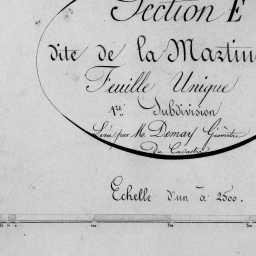 Section E
dite de la Martin
Feuille Unique
1re Subdivision
Levé par Mr Demay Géomètre
Du Cadastre
Echelle d'un à 2500.